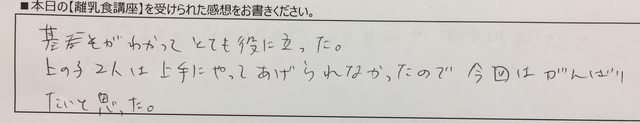 ■本日の【離乳食講座】を受けられた感想をお書きください。
基本がわかってとても役に立った。
上の子2人は上手にやってあげられなかったので今回はがんばり
たいと思った。